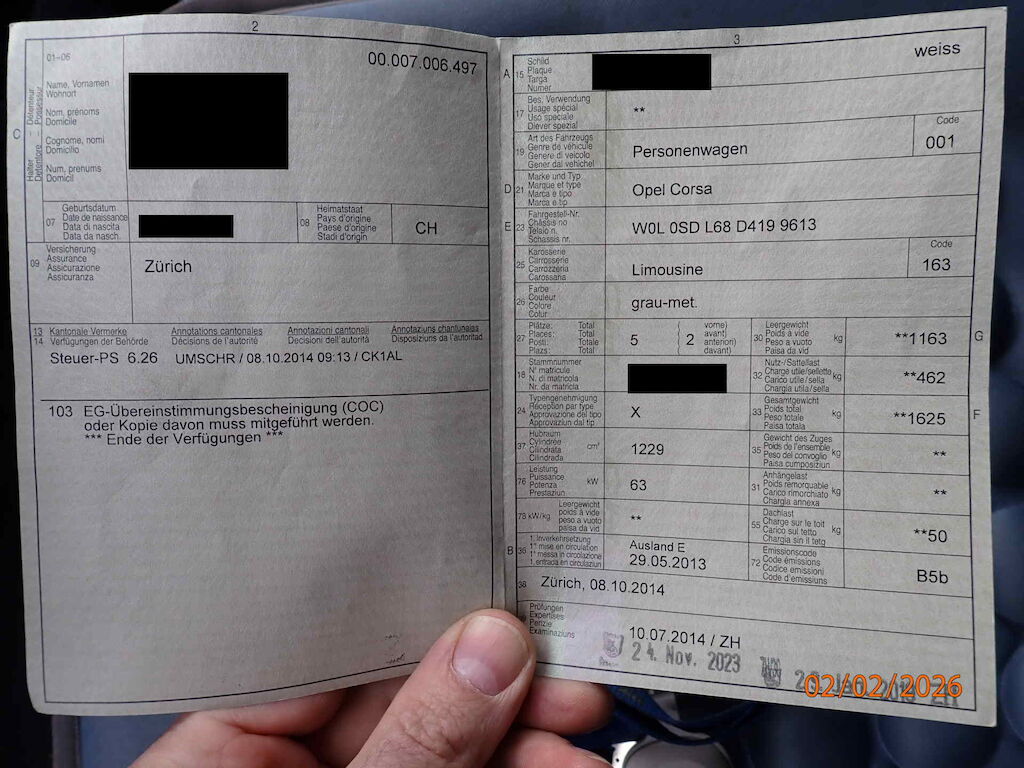 2
01–06
00.007.006.497
C
Halter
Détenteur
Detentore
Possessur
Name, Vornamen
Wohnort
Nom, prénoms
Domicile
Cognome, nomi
Domicilio
Num, prenums
Domicil
07
Geburtsdatum
Date de naissance
Data di nascita
Data da nasch.
08
Heimatstaat
Pays d'origine
Paese d'origine
Stadi d'origin
CH
09
Versicherung
Assurance
Assicurazione
Assicuranza
Zürich
13 Kantonale Vermerke Annotations cantonales Annotazioni cantonali Annotaziuns chantunalas
14 Verfügungen der Behörde Décisions de l'autorité Decisioni dell'autorità Disposiziuns da l'autoritad
Steuer-PS 6.26 UMSCHR / 08.10.2014 09:13 / CK1AL
103 EG-Übereinstimmungsbescheinigung (COC)
oder Kopie davon muss mitgeführt werden.
*** Ende der Verfügungen ***
3
A 15
Schild
Plaque
Targa
Numer
weiss
17
Bes. Verwendung
Usage spécial
Uso speciale
Diever spezial
**
19
Art des Fahrzeugs
Genre de véhicule
Genere di veicolo
Gener dal vehichel
Personenwagen
Code
001
D 21
Marke und Typ
Marque et type
Marca e tipo
Marca e tip
Opel Corsa
E 23
Fahrgestell-Nr.
Châssis no
Telaio n.
Schassis nr.
W0L 0SD L68 D419 9613
25
Karosserie
Carrosserie
Carrozzeria
Carossaria
Limousine
Code
163
26
Farbe
Couleur
Colore
Colur
grau-met.
27
Plätze: Total
Places: Total
Posti: Totale
Plazs: Total
5
( 2
vorne)
avant)
anteriori)
davant)
30
Leergewicht
Poids à vide
Peso a vuoto
Paisa da vid
kg
**1163
G
18
Stammnummer
N° matricule
N. di matricola
Nr. da matricla
32
Nutz-/Sattellast
Charge utile/sellette
Carico utile/sella
Chargia utila/sella
kg
**462
24
Typengenehmigung
Réception par type
Approvazione del tipo
Approvaziun dal tip
X
33
Gesamtgewicht
Poids total
Peso totale
Paisa totala
kg
**1625
F
37
Hubraum
Cylindrée
Cilindrata
Cilindrada
cm³
1229
35
Gewicht des Zuges
Poids de l'ensemble
Peso del convoglio
Paisa cumposiziun
kg
**
76
Leistung
Puissance
Potenza
Prestaziun
kW
63
31
Anhängelast
Poids remorquable
Carico rimorchiato
Chargia annexa
kg
**
78 kW/kg
Leergewicht
poids à vide
peso a vuoto
paisa da vid
**
55
Dachlast
Charge sur le toit
Carico sul tetto
Chargia sin il tetg
kg
**50
B 36
1. Inverkehrsetzung
1re mise en circulation
1a messa in circolazione
1. entrada en circulaziun
Ausland E
29.05.2013
72
Emissionscode
Code émissions
Codice emissioni
Code d'emissiuns
B5b
38
Zürich, 08.10.2014
Prüfungen
Expertises
Perizie
Examinaziuns
10.07.2014 / ZH
24. Nov. 2023
02/02/2026